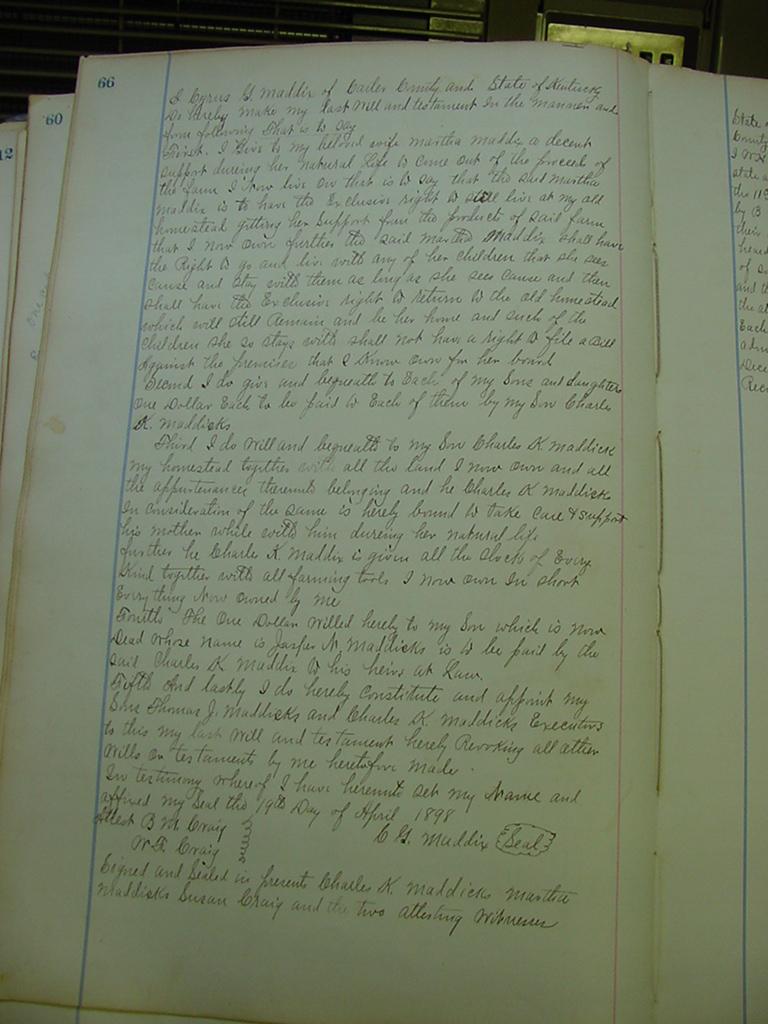 66
60
12
I Cyrus G Maddix of Carter County and State of Kentucky
do hereby make my last Will and testament In the manner and
form following That is to Say
First. I Give to my beloved wife Martha Maddix a decent
support dureing her natural Life to Come out of the proceeds of
the Farm I Now live on that is to say that the said Martha
Maddix is to have the Exclusive right to still live at my old
homestead gitting her Support from the products of said farm
that I now own further the said Martha Maddix shall have
the Right to go and live with any of her children that she sees
cause and stay with them as long as she sees Cause and then
shall have the Exclusive right to return to the old homestead
which will still Remain and be her home and such of the
children she so stays with shall not have a right to file a Bill
Against the premises that I Know own for her bord
Second I do give and bequeath to Each of my Sons and daughters
One Dollar Each to be paid to Each of them by my Son Charles
K. Maddicks
Third I do Will and bequeath to my Son Charles K. Maddicks
my homestead together with all the land I now own and all
the appurtenances thereunto belonging and he Charles K Maddicks
In Consideration of the same is hereby bound to take Care & support
his mother while with him dureing her natural life
further he Charles K. Maddix is given all the stock of Every
Kind together with all farming tools I now own In short
Every thing Now owned by me
Fourth The One Dollar Willed hereby to my Son which is now
Dead Whose name is Jasper N. Maddicks is to be paid by the
said Charles K. Maddix to his heirs at Law.
Fifth And lastly I do hereby Constitute and appoint my
Sons Thomas J. Maddicks and Charles K. Maddicks Executors
to this my last Will and testament hereby Revoking all other
Wills or testaments by me heretofore made.
In testimony whereof I have hereunto set my Name and
affixed my Seal this 19th Day of April 1898
Attest B M. Craig
C G. Maddix Seal
W. F. Craig
Signed and Sealed in presents Charles K. Maddicks Martha
Maddicks Susan Craig and the two attesting Witnesses
State
County
the
by B
their
heard
of
and
the
Each